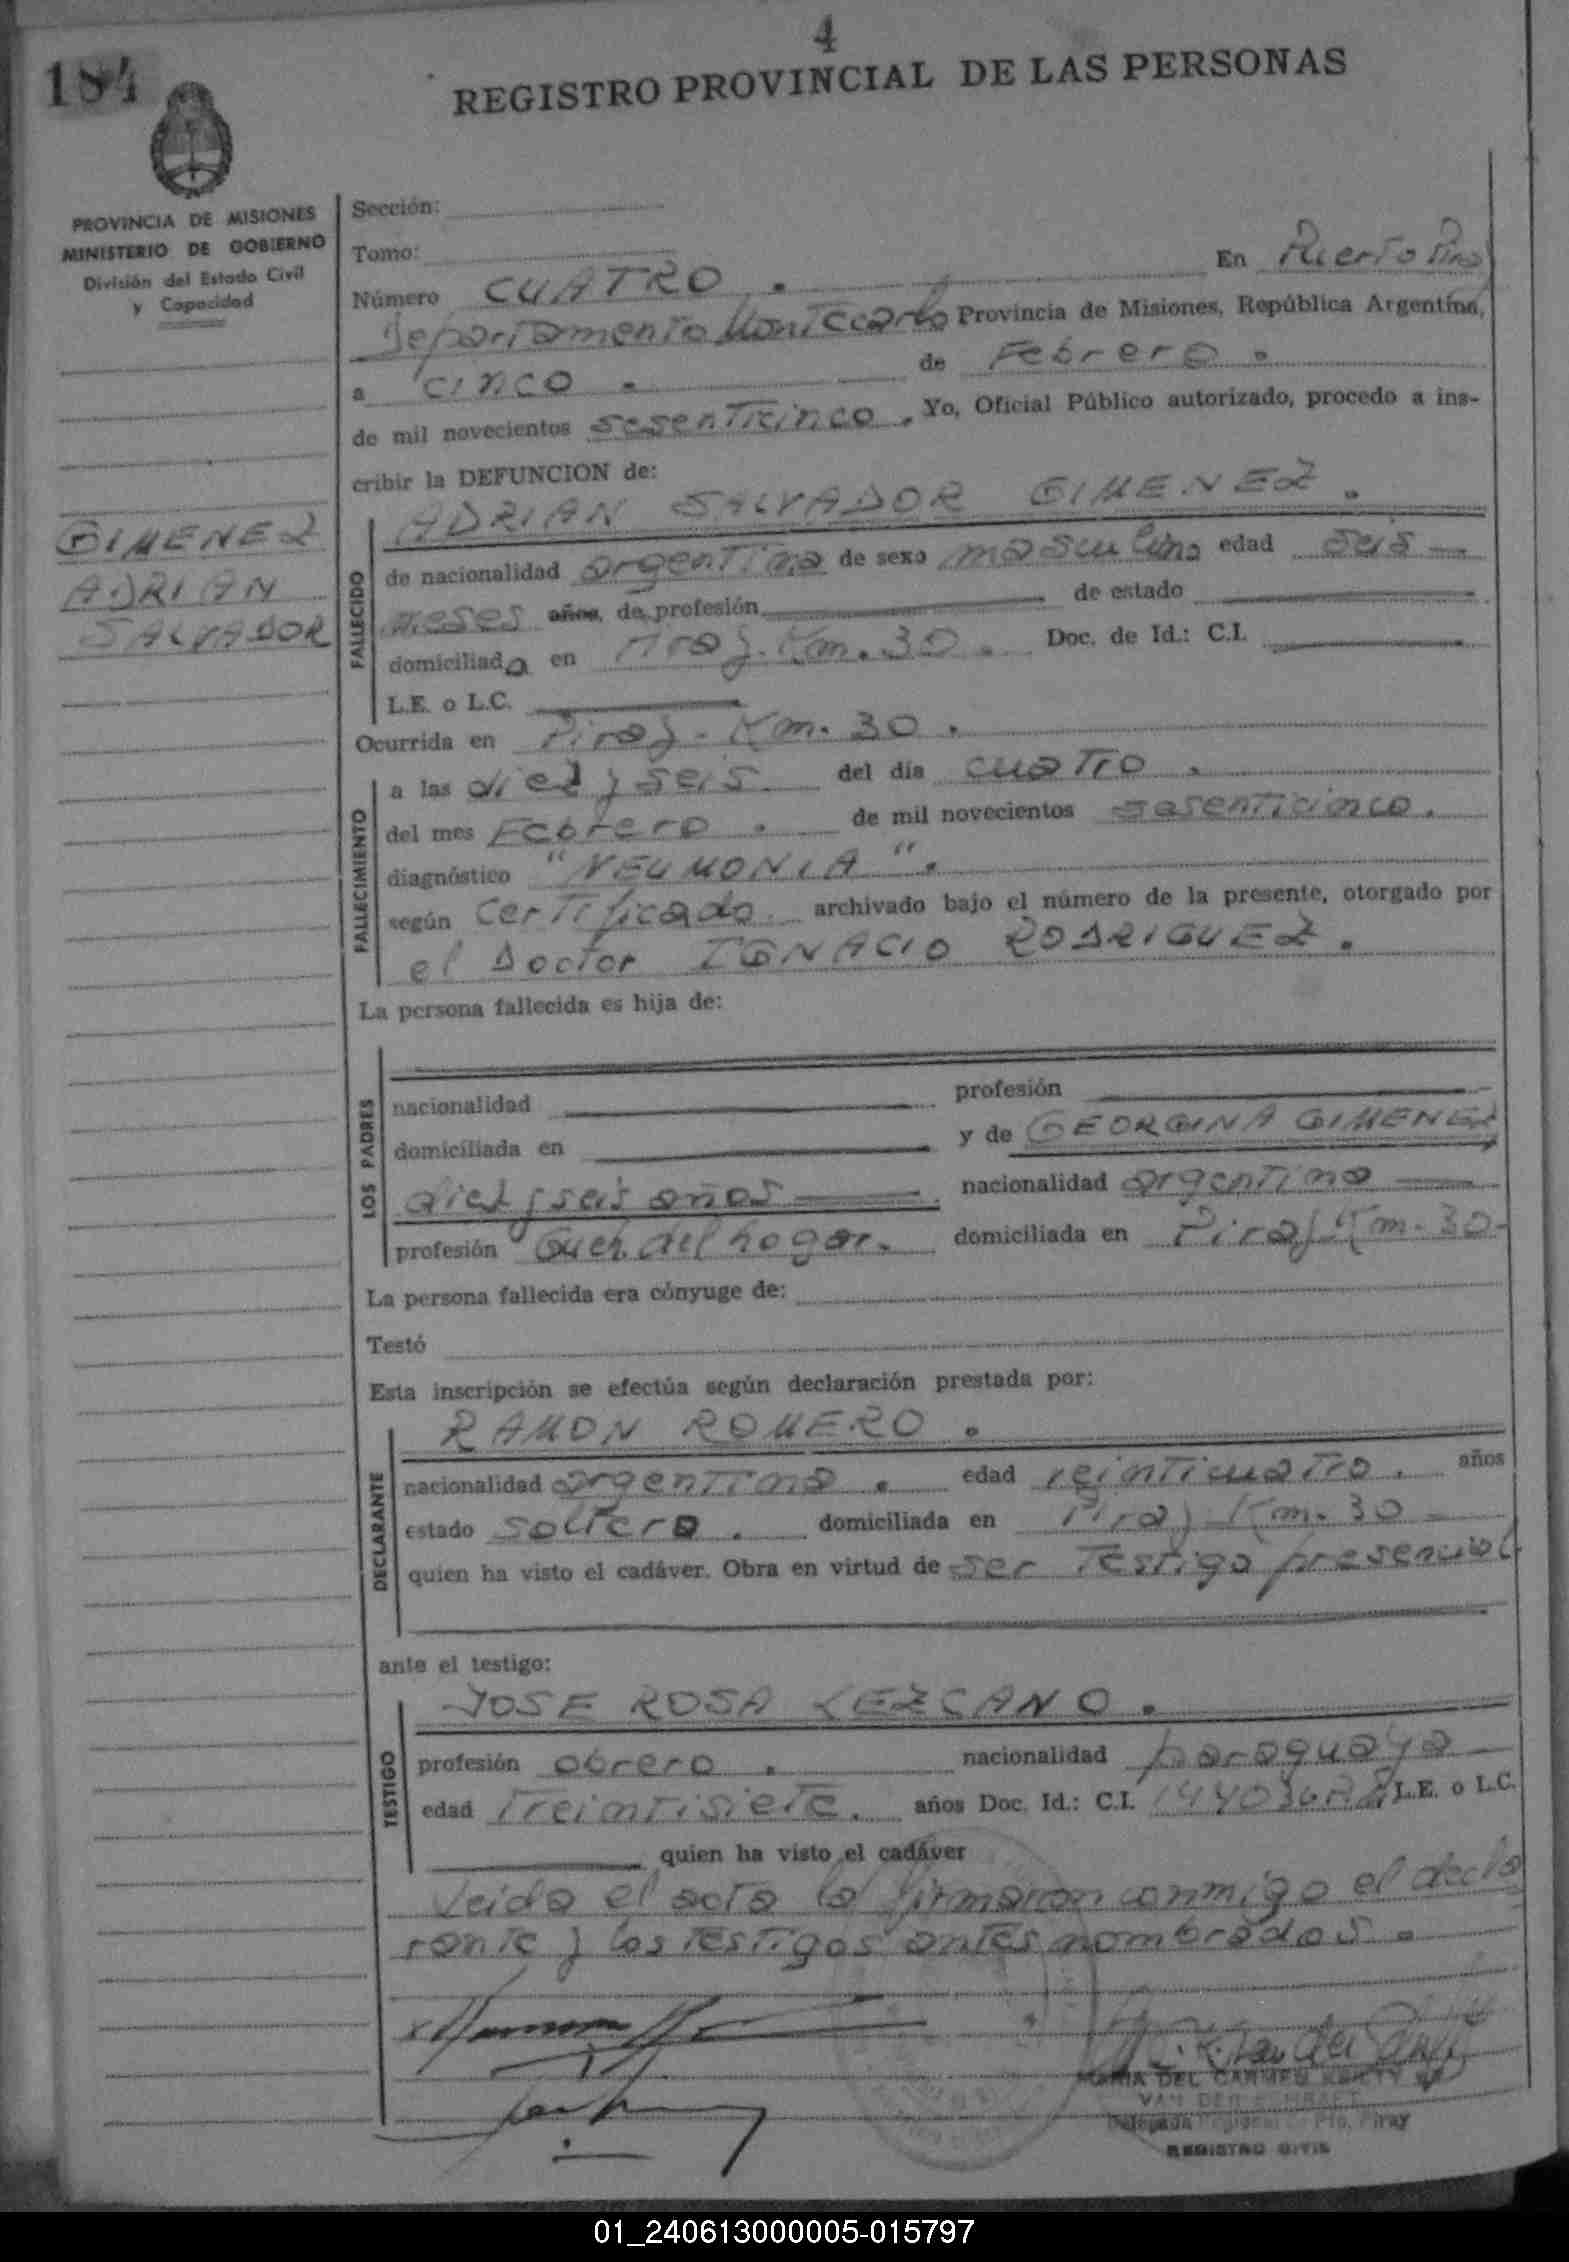 4
184
REGISTRO PROVINCIAL DE LAS PERSONAS
PROVINCIA DE MISIONES
MINISTERIO DE GOBIERNO
División del Estado Civil
y Capacidad
GIMENEZ
ADRIAN
SALVADOR
Sección:
Tomo:
En Puerto Piray
Número CUATRO.
Departamento Montecarlo Provincia de Misiones, República Argentina,
a cinco. de Febrero.
de mil novecientos sesenticinco. Yo, Oficial Público autorizado, procedo a ins-
cribir la DEFUNCION de:
ADRIAN SALVADOR GIMENEZ.
FALLECIDO
de nacionalidad argentina de sexo masculino edad seis
meses años, de profesión de estado
domiciliada en Piray. Km. 30. Doc. de Id.: C.I.
L.E. o L.C.
Ocurrida en Piray. Km. 30.
FALLECIMIENTO
a las diez y seis. del día cuatro.
del mes Febrero. de mil novecientos sesenticinco.
diagnóstico "NEUMONIA".
según certificado archivado bajo el número de la presente, otorgado por
el Doctor IGNACIO RODRIGUEZ.
La persona fallecida es hija de:
LOS PADRES
nacionalidad profesión
domiciliada en y de GEORGINA GIMENEZ
diez y seis años nacionalidad argentina
profesión Queh. del hogar. domiciliada en Piray Km. 30-
La persona fallecida era cónyuge de:
Testó
Esta inscripción se efectúa según declaración prestada por:
RAMON ROMERO.
DECLARANTE
nacionalidad argentina. edad veinticuatro. años
estado soltero. domiciliada en Piray Km. 30
quien ha visto el cadáver. Obra en virtud de ser testigo presencial
ante el testigo:
JOSE ROSA LEZCANO.
TESTIGO
profesión obrero. nacionalidad paraguaya
edad treintisiete. años Doc. Id.: C.I. L.E. o L.C.
quien ha visto el cadáver
Leida el acta la firmaron conmigo el decla
rante y los testigos antes nombrados.
MARIA DEL CARMEN
VAN DER
Delegada Regional de Pto. Piray
REGISTRO CIVIL
01_240613000005-015797